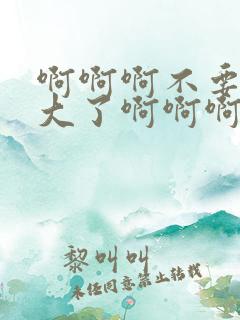 啊啊啊不要
大了啊啊啊
黎叫叫
未经同意禁止转载